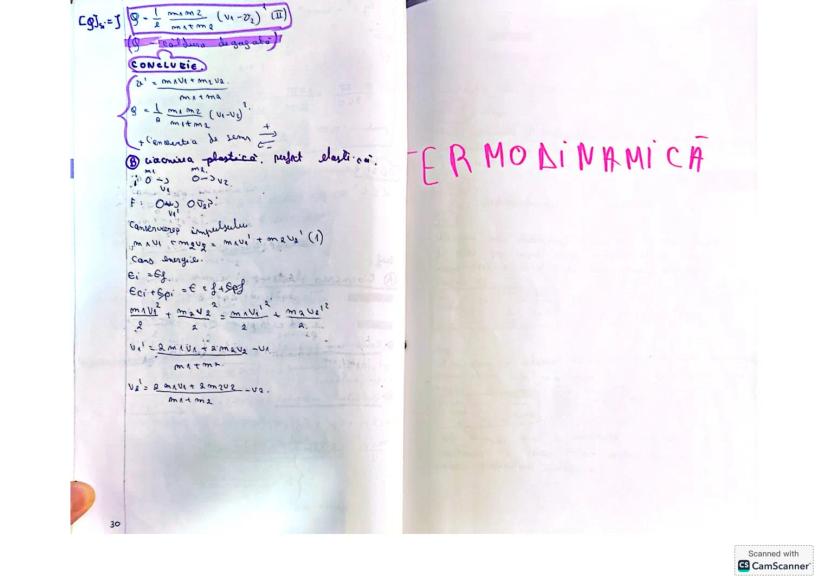 [Q]SI = J Q = 1/2 m1m2/(m1+m2) (v1-v2)² (II)
(Q - căldura degajată)
CONCLUZIE.
v' = (m1v1+m2v2)/(m1+m2)
Q = 1/2 m1m2/(m1+m2) (v1-v2)².
+ Convenția de semn + → ← -
B ciocnirea plastică, perfect elastică.
m1 m2
i: O → O → v2
v1
F: O → O v2'
v1'
Conservarea impulsului
m1v1 + m2v2 = m1v1' + m2v2' (1)
Cons energiei
Ei = Ef
m1v1²/2 + m2v2²/2 = m1v1'²/2 + m2v2'²/2
v1' = (2m1v1 + 2m2v2)/(m1+m2) - v1
v2' = (2m1v1 + 2m2v2)/(m1+m2) - v2.
30
TERMODINAMICĂ
Scanned with
CS CamScanner